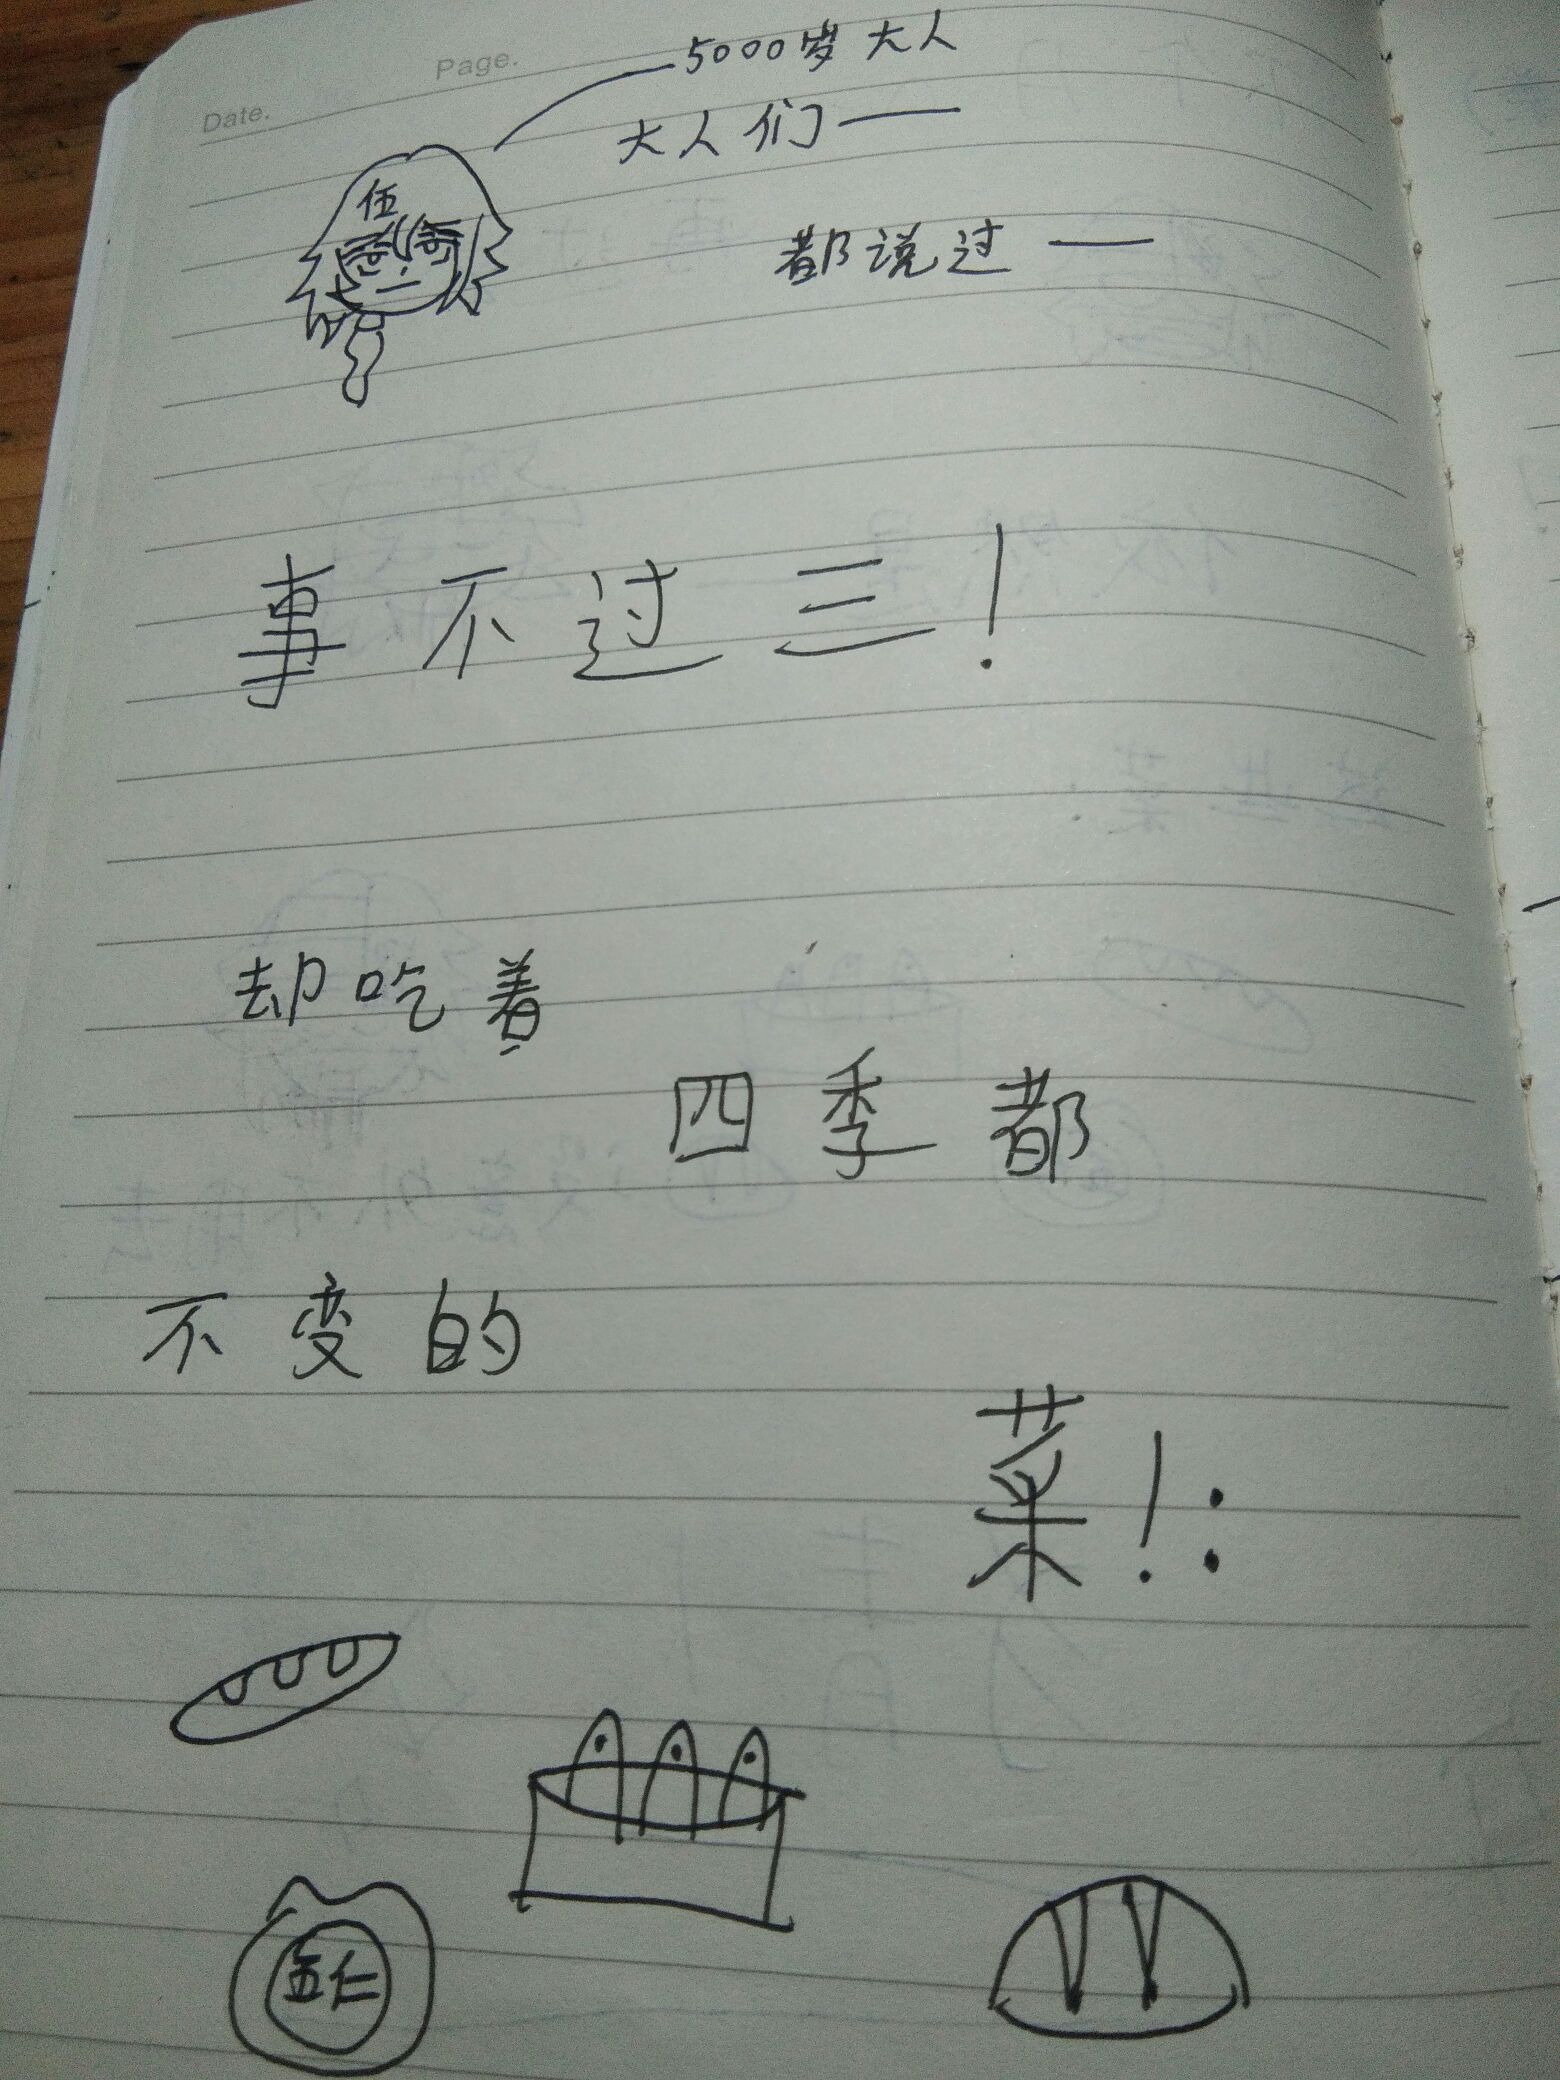 Date.
Page.
5000岁大人
大人们——
伍
都说过——
事不过三！
却吃着
四季都
不变的
菜！：
五仁